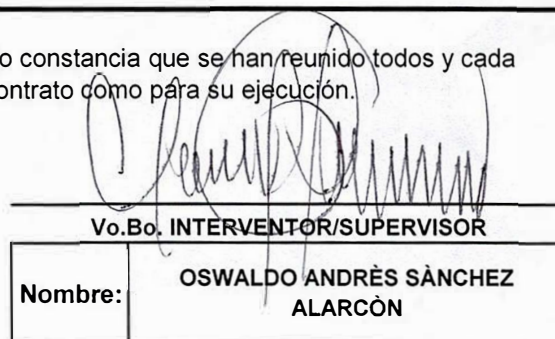 o constancia que se han reunido todos y cada
ontrato como para su ejecución.
Vo.Bo. INTERVENTOR/SUPERVISOR
Nombre: OSWALDO ANDRÈS SÀNCHEZ
ALARCÒN